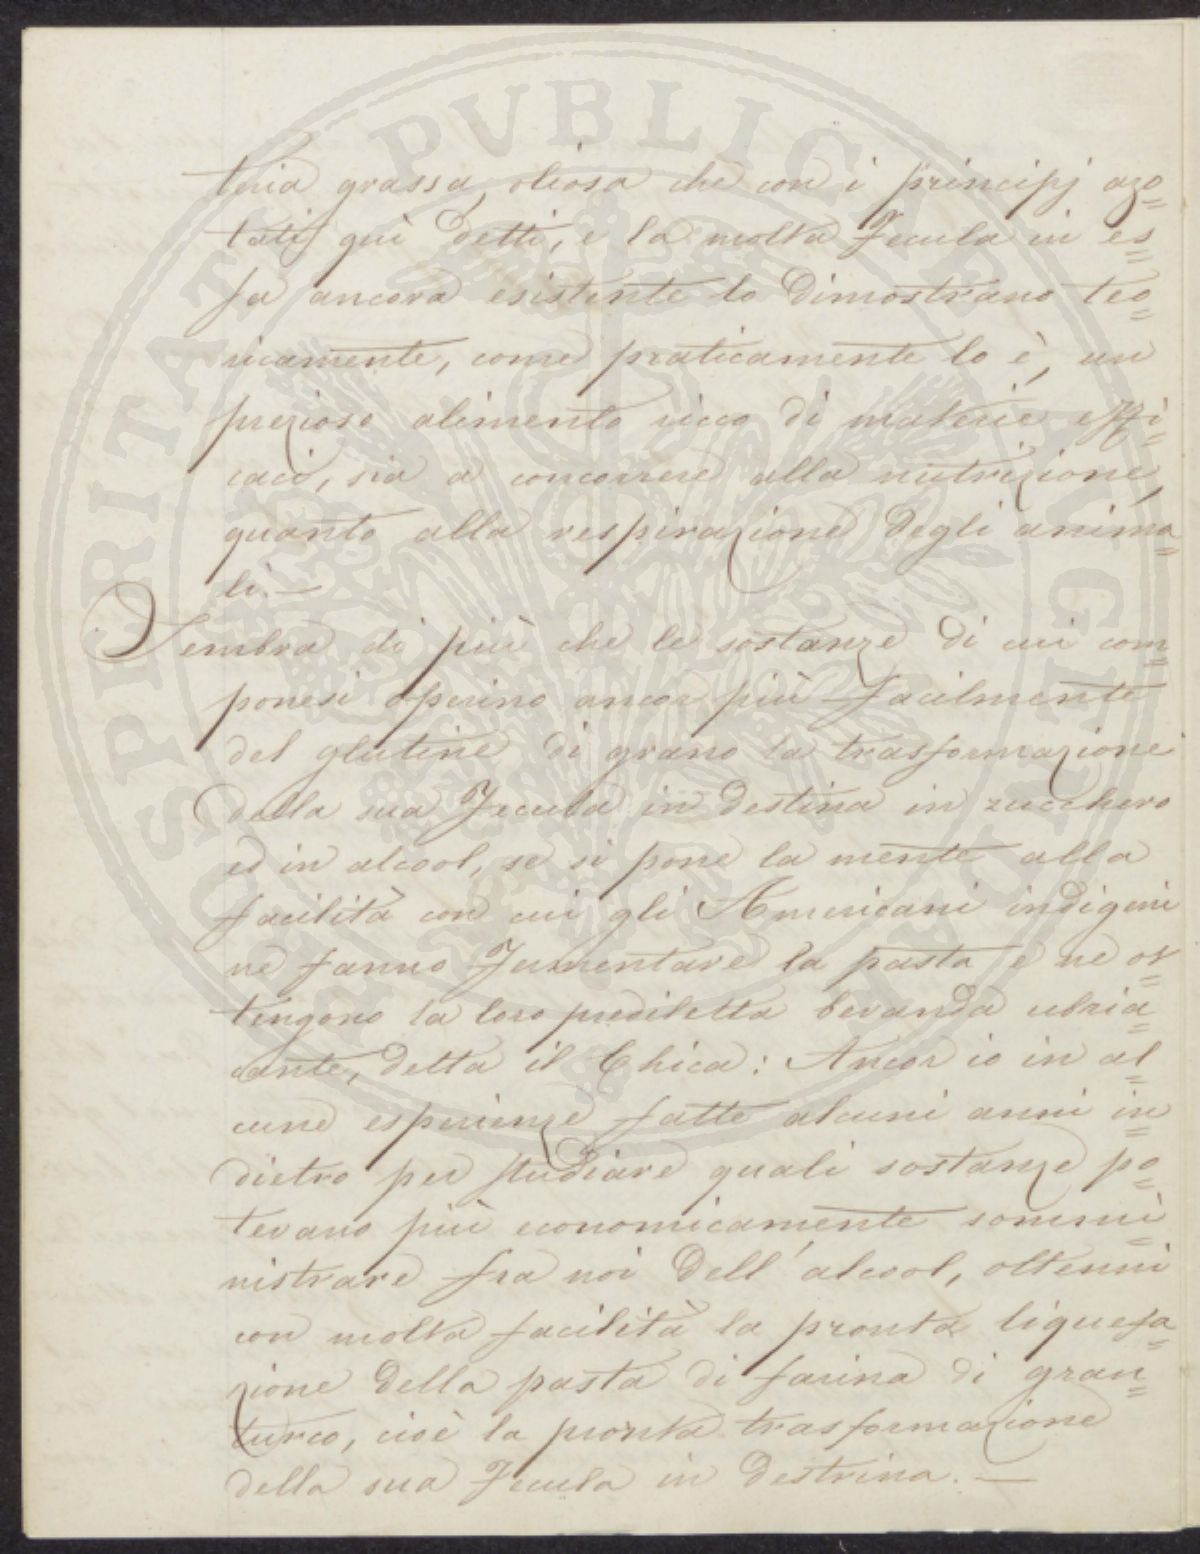 teria grassa, oliosa che con i principj azo=
tati quì detti, e la molta Fecula in es=
sa ancora esistente lo dimostrano teo=
ricamente, come praticamente lo è, un
prezioso alimento ricco di materie effi=
caci, sia a concorrere alla nutrizione,
quanto alla respirazione degli anima=
li. —
Sembra di più che le sostanze di cui com=
ponesi operino ancor più facilmente
del glutine di grano la trasformazione
della sua Fecula in destina in zucchero
ed in alcool, se si pone la mente alla
facilità con cui gli Americani indigeni
ne fanno Fermentare la pasta e ne ot=
tengono la loro prediletta bevanda ubria=
cante, detta il Chica: Ancor io in al=
cune esperienze fatte alcuni anni in=
dietro per studiare quali sostanze po=
tevano più economicamente sommi=
nistrare fra noi dell'alcool, ottenni
con molta facilità la pronta liquefa=
zione della pasta di farina di gran=
turco, cioè la pronta trasformazione
della sua Fecula in destrina. —
PROSPERITATI PVBLICAE AVGENDAE